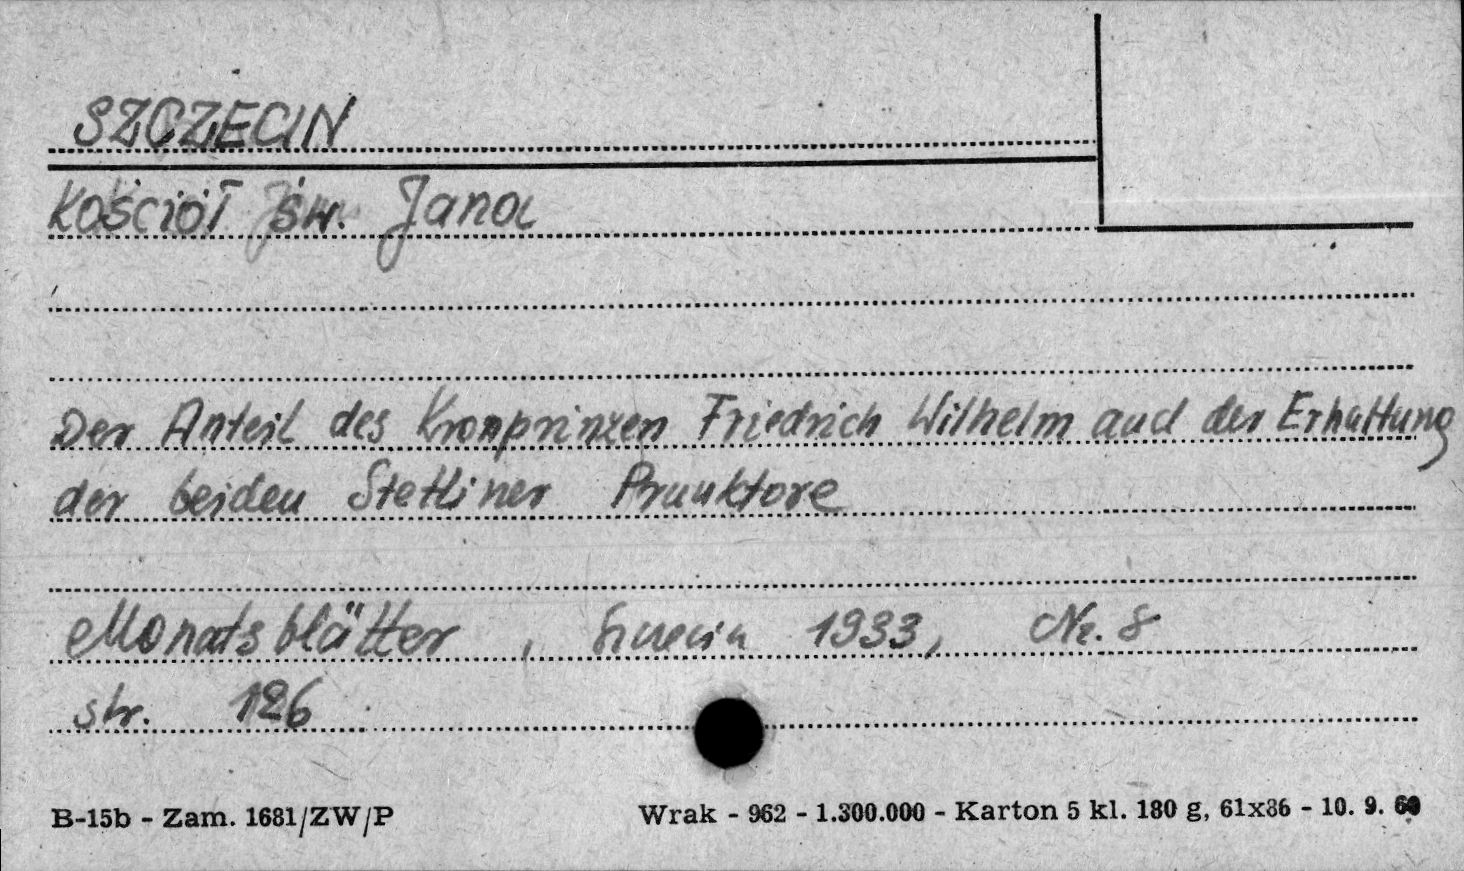 SZCZECIN
Kościół św. Jana
Der Anteil des Kronprinzen Friedrich Wilhelm aud der Erhaltung
der beiden Stettiner Prunktore
Monatsblätter, 1933, Nr. 8
str. 126
B-15b - Zam. 1681/ZW/P
Wrak - 962 - 1.300.000 - Karton 5 kl. 180 g, 61x86 - 10. 9. 60